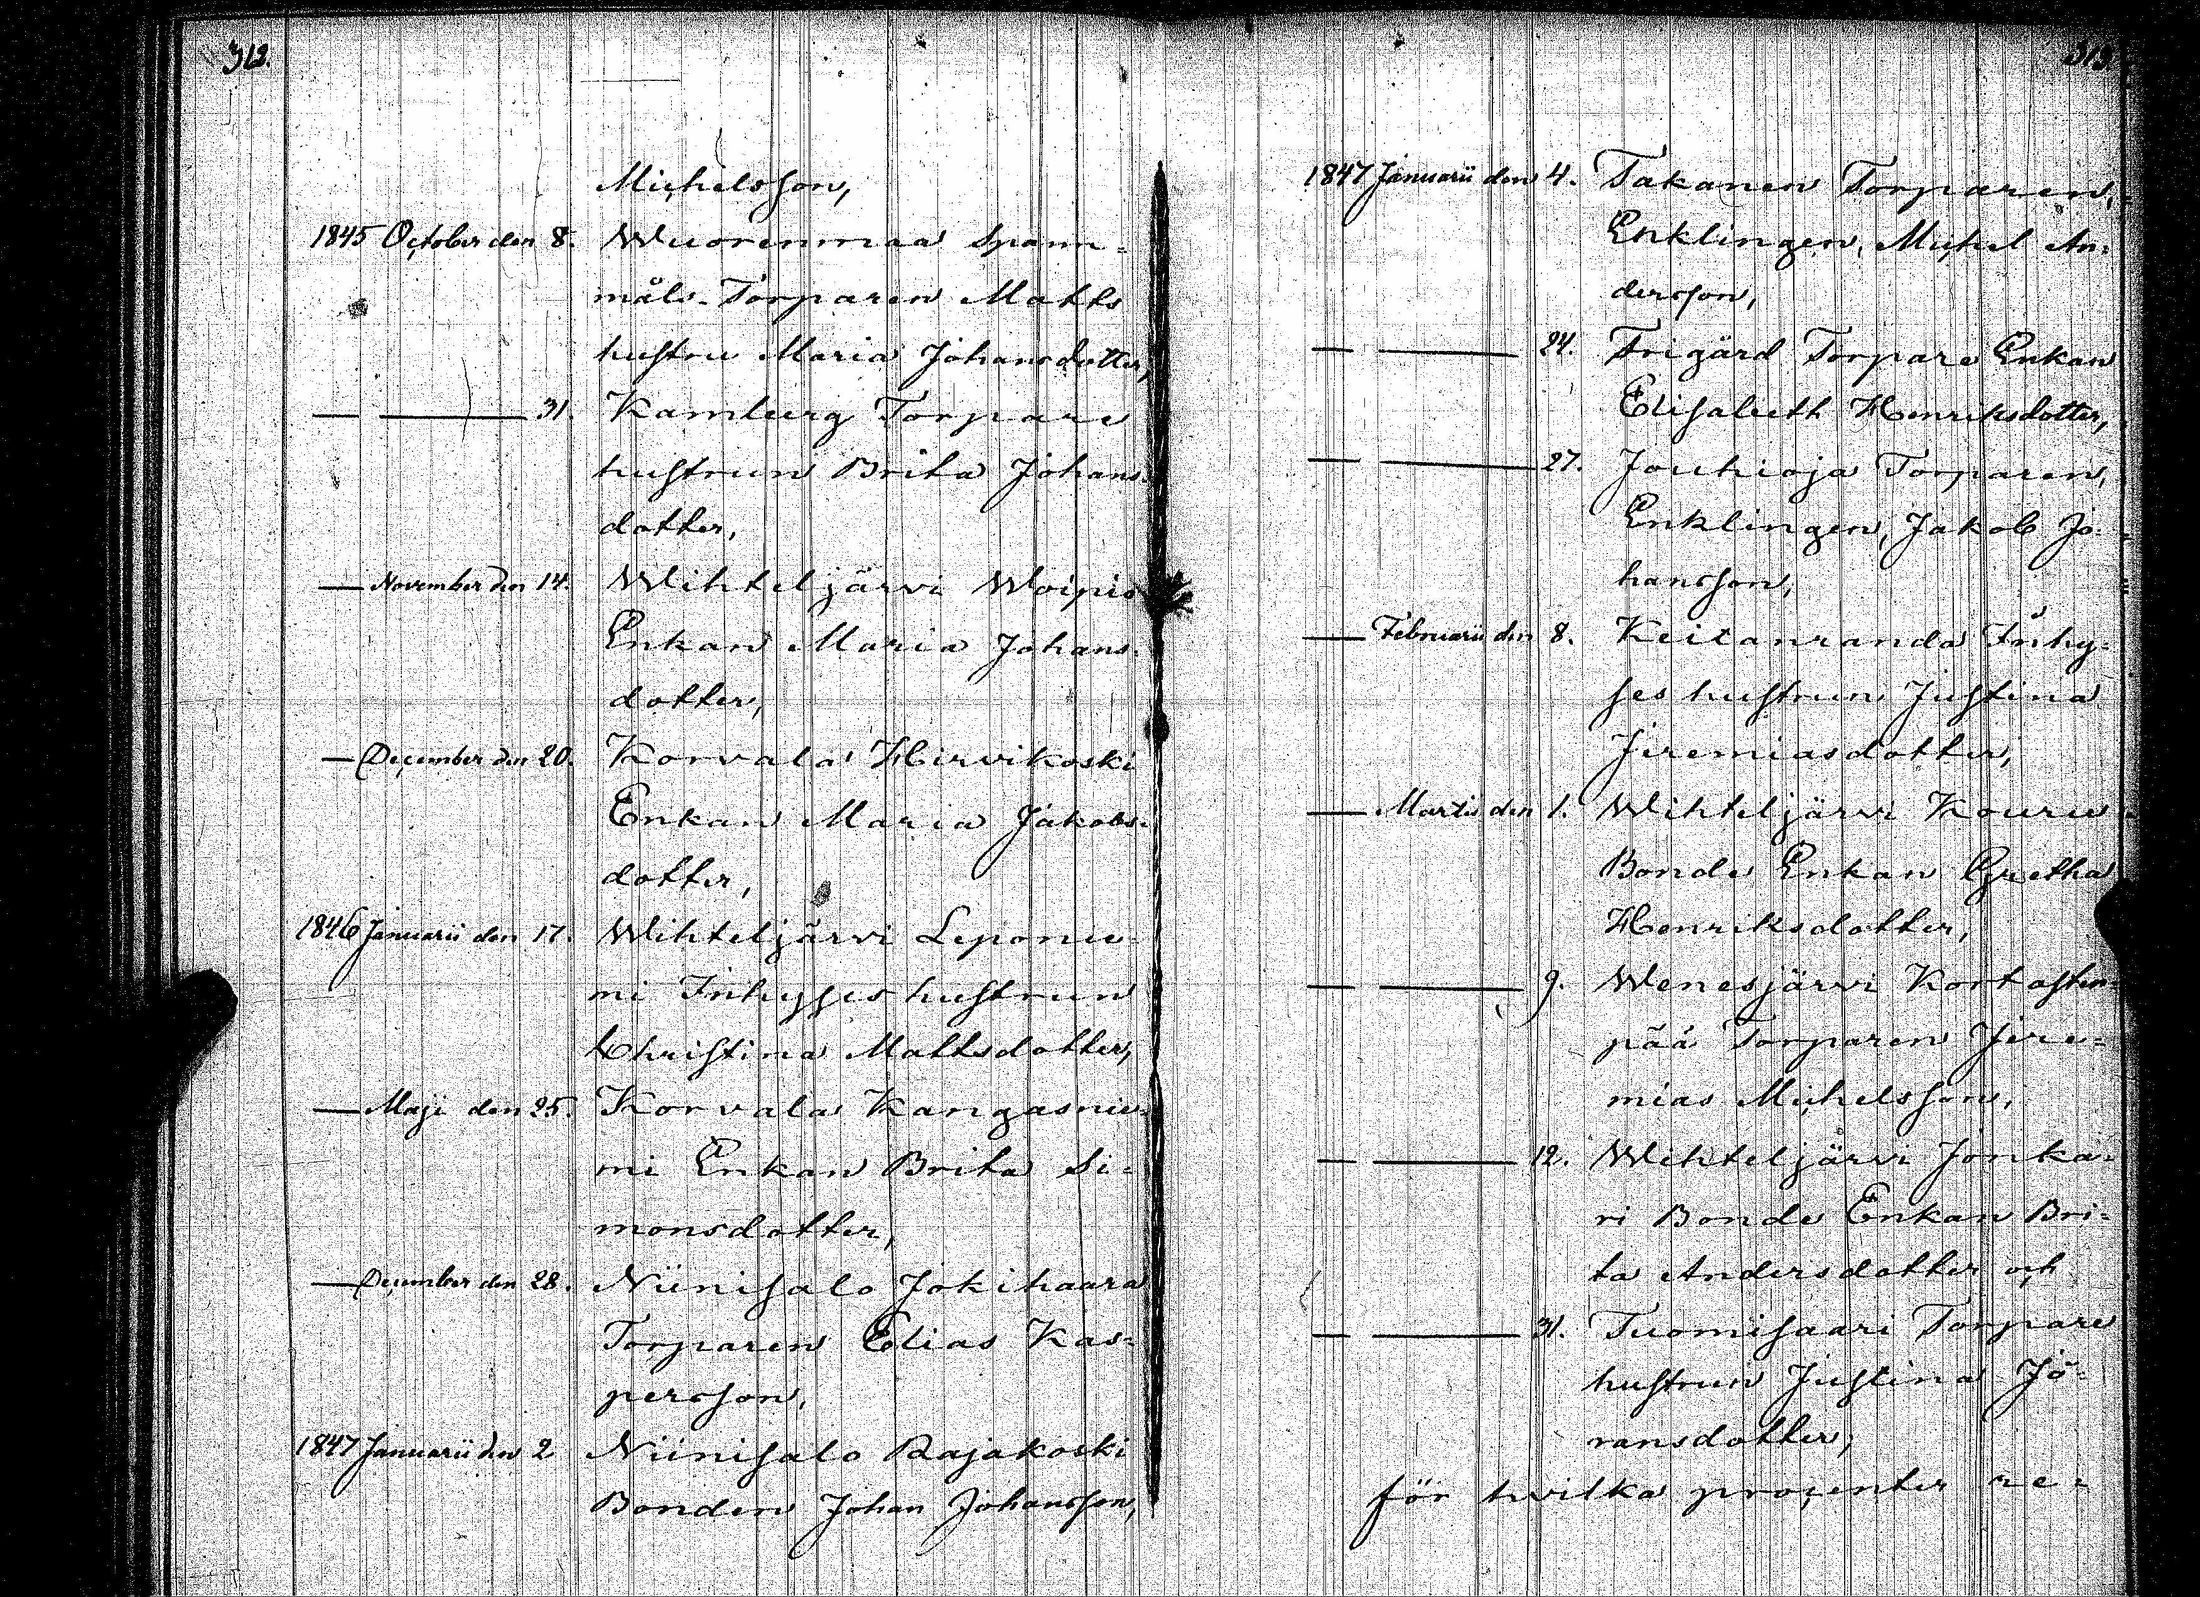 312.
Michelsson,
1845 October den 8. Wuorenmaa Spann-
måls-Torparen Matts
hustru Maria Johansdotter,
— — 31. Kamberg Torpare
hustrun Brita Johans-
dotter,
— November den 14. Wihteljärvi Woipio
Enkan Maria Johans-
dotter,
— December den 20. Korvala Hirvikoski
Enkan Maria Jakobs-
dotter,
1846 Januarii den 17. Wihteljärvi Leponie-
mi Inhysses hustrun
Christina Mattsdotter,
— Maji den 25. Korvala Kangasnie-
mi Enkan Brita Si-
monsdotter,
— December den 28. Niinisalo Jokihaara
Torparen Elias Kas-
persson,
1847 Januarii den 2 Niinisalo Rajakoski
Bonden Johan Johansson,
313
1847 Januarii den 4. Takanen Torparen,
Enklingen, Michel An-
dersson,
— — 24. Frigård Torpare Enkan
Elisabeth Henriksdotter,
— — 27. Jouhioja Torparen,
Enklingen, Jakob Jo-
hansson,
— Februarii den 8. Keitanranda Inhy-
ses hustrun Justina
Jeremiasdotter,
— Martii den 1. Wihteljärvi Kouru
Bonde Enkan Gretha
Henriksdotter,
— — 9. Wenesjärvi Kortasten-
pää Torparen Jere-
mias Michelsson,
— — 12. Wihteljärvi Jonka-
ri Bonde Enkan Bri-
ta Andersdotter och
— — 31. Tuomisaari Torpare
hustrun Justina Jö-
ransdotter;
för hvilka procenter re-